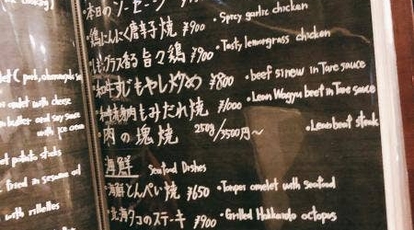 ・本日のソーセージ
・鶏にんにく唐辛子焼 ¥900 ・Spicy garlic chicken
・レモングラス香る旨々鶏 ¥900 ・Tasty lemongrass chicken
・和牛すじもやし炒め ¥800 ・beef sinew in Tare sauce
もみだれ焼 ¥1000 ・Lean Wagyu beef in Tare sauce
・肉の塊焼 250g/3500円～ ・Lean beef steak
海鮮 Seafood Dishes
・海鮮とんぺい焼 ¥650 ・Tonpei omelet with Seafood
・北海タコのステーキ ¥900 ・Grilled Hokkaido octopus
pork,
omelet with cheese
butter and soy sauce
with ice cream
potato sticks
fried in sesame oil
with rillettes